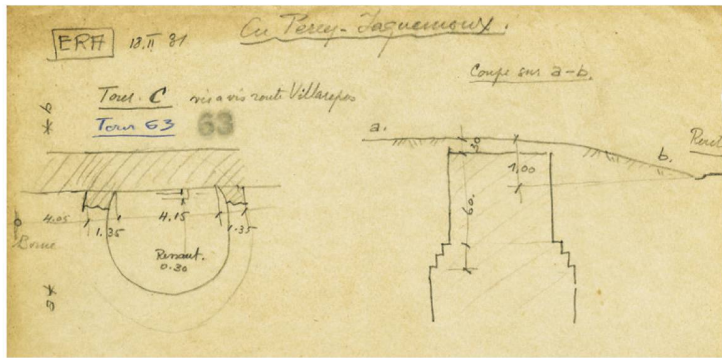 ERA 13.II 31
En Perey-Jaquemoux.
Tour. C vis a vis route Villarepos
Tour 63 63
Coupe sur a-b.
a.
b.
30
1.00
60.
4.05
1.35
4.15
1.35
Borne
Ressaut.
0.30
b
a